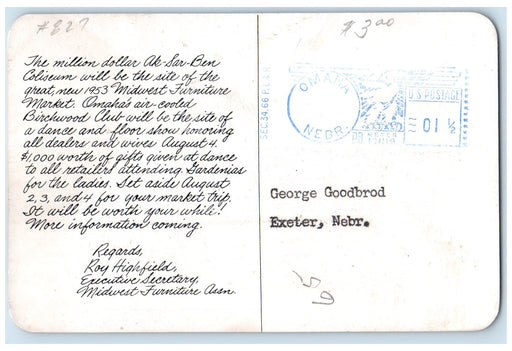 #827
$3.00
The million dollar Ak-Sar-Ben
Coliseum will be the site of the
great, new 1953 Midwest Furniture
Market. Omaha's air-cooled
Birchwood Club will be the site of
a dance and floor show honoring
all dealers and wives August 4.
$1,000 worth of gifts given at dance
to all retailers attending. Gardenias
for the ladies. Set aside August
2, 3, and 4 for your market trip.
It will be worth your while!
More information coming.
Regards,
Roy Highfield,
Executive Secretary,
Midwest Furniture Assn.
SEC. 34.66 P.L.&R.
OMAHA
NEBR.
U.S. POSTAGE
01 ½
George Goodbrod
Exeter, Nebr.